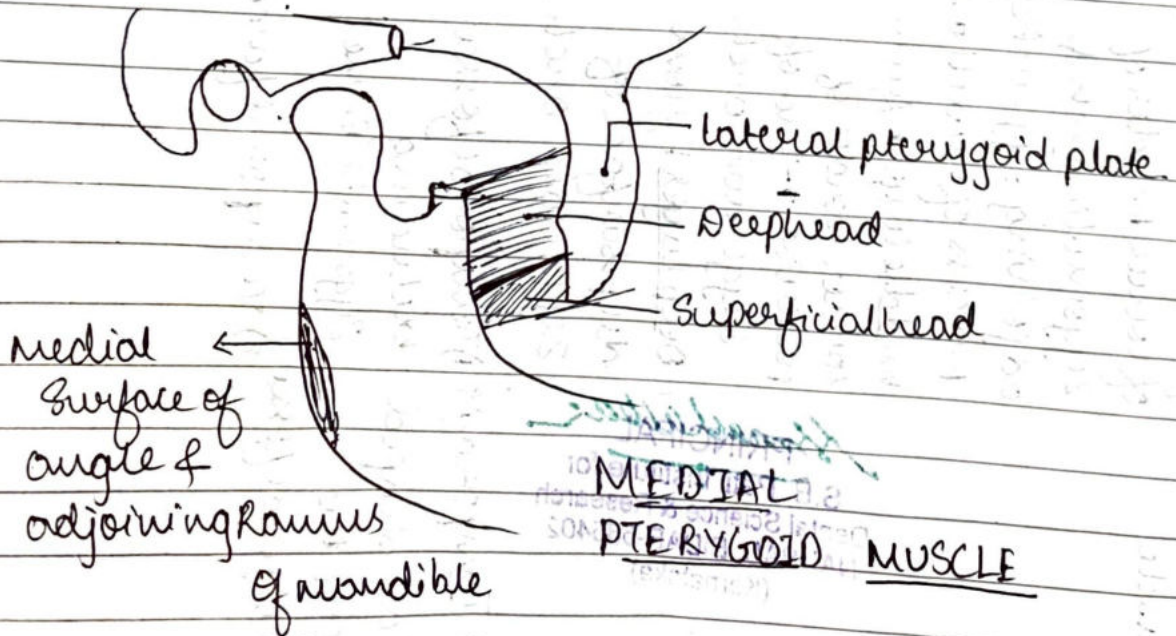 Lateral pterygoid plate.
Deephead
Superficial head
Medial
Surface of
angle &
adjoining Ramus
of mandible
MEDIAL
PTERYGOID MUSCLE